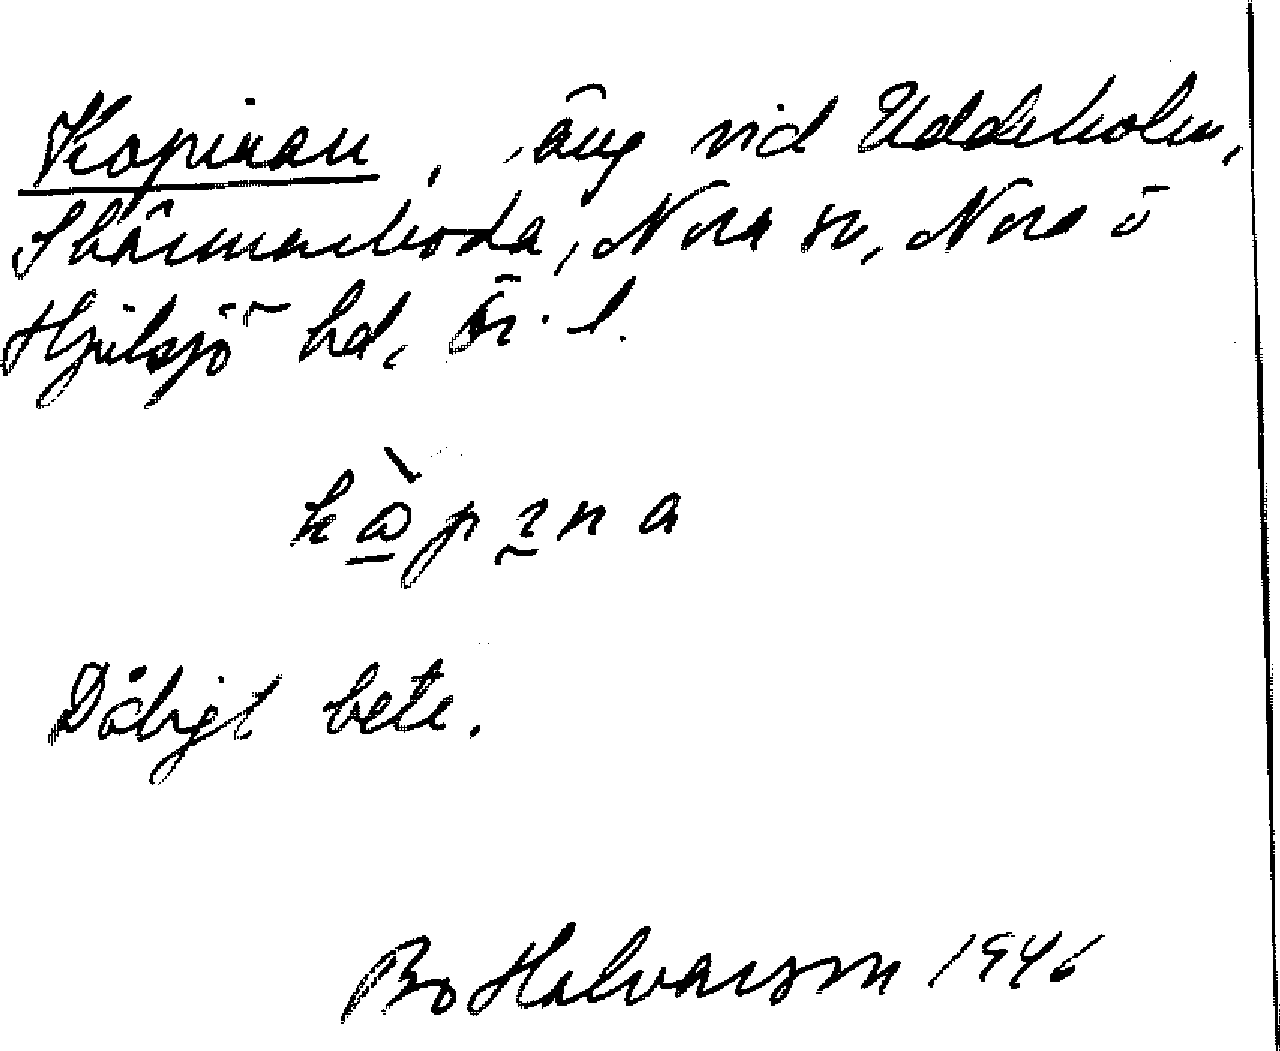 Kopinan, äng vid Uddeholm,
Skärmarboda, Nora sn, Nora ö
Hjulsjö hd, Ör. l.
Dåligt bete.
Bo Halvarson 1946